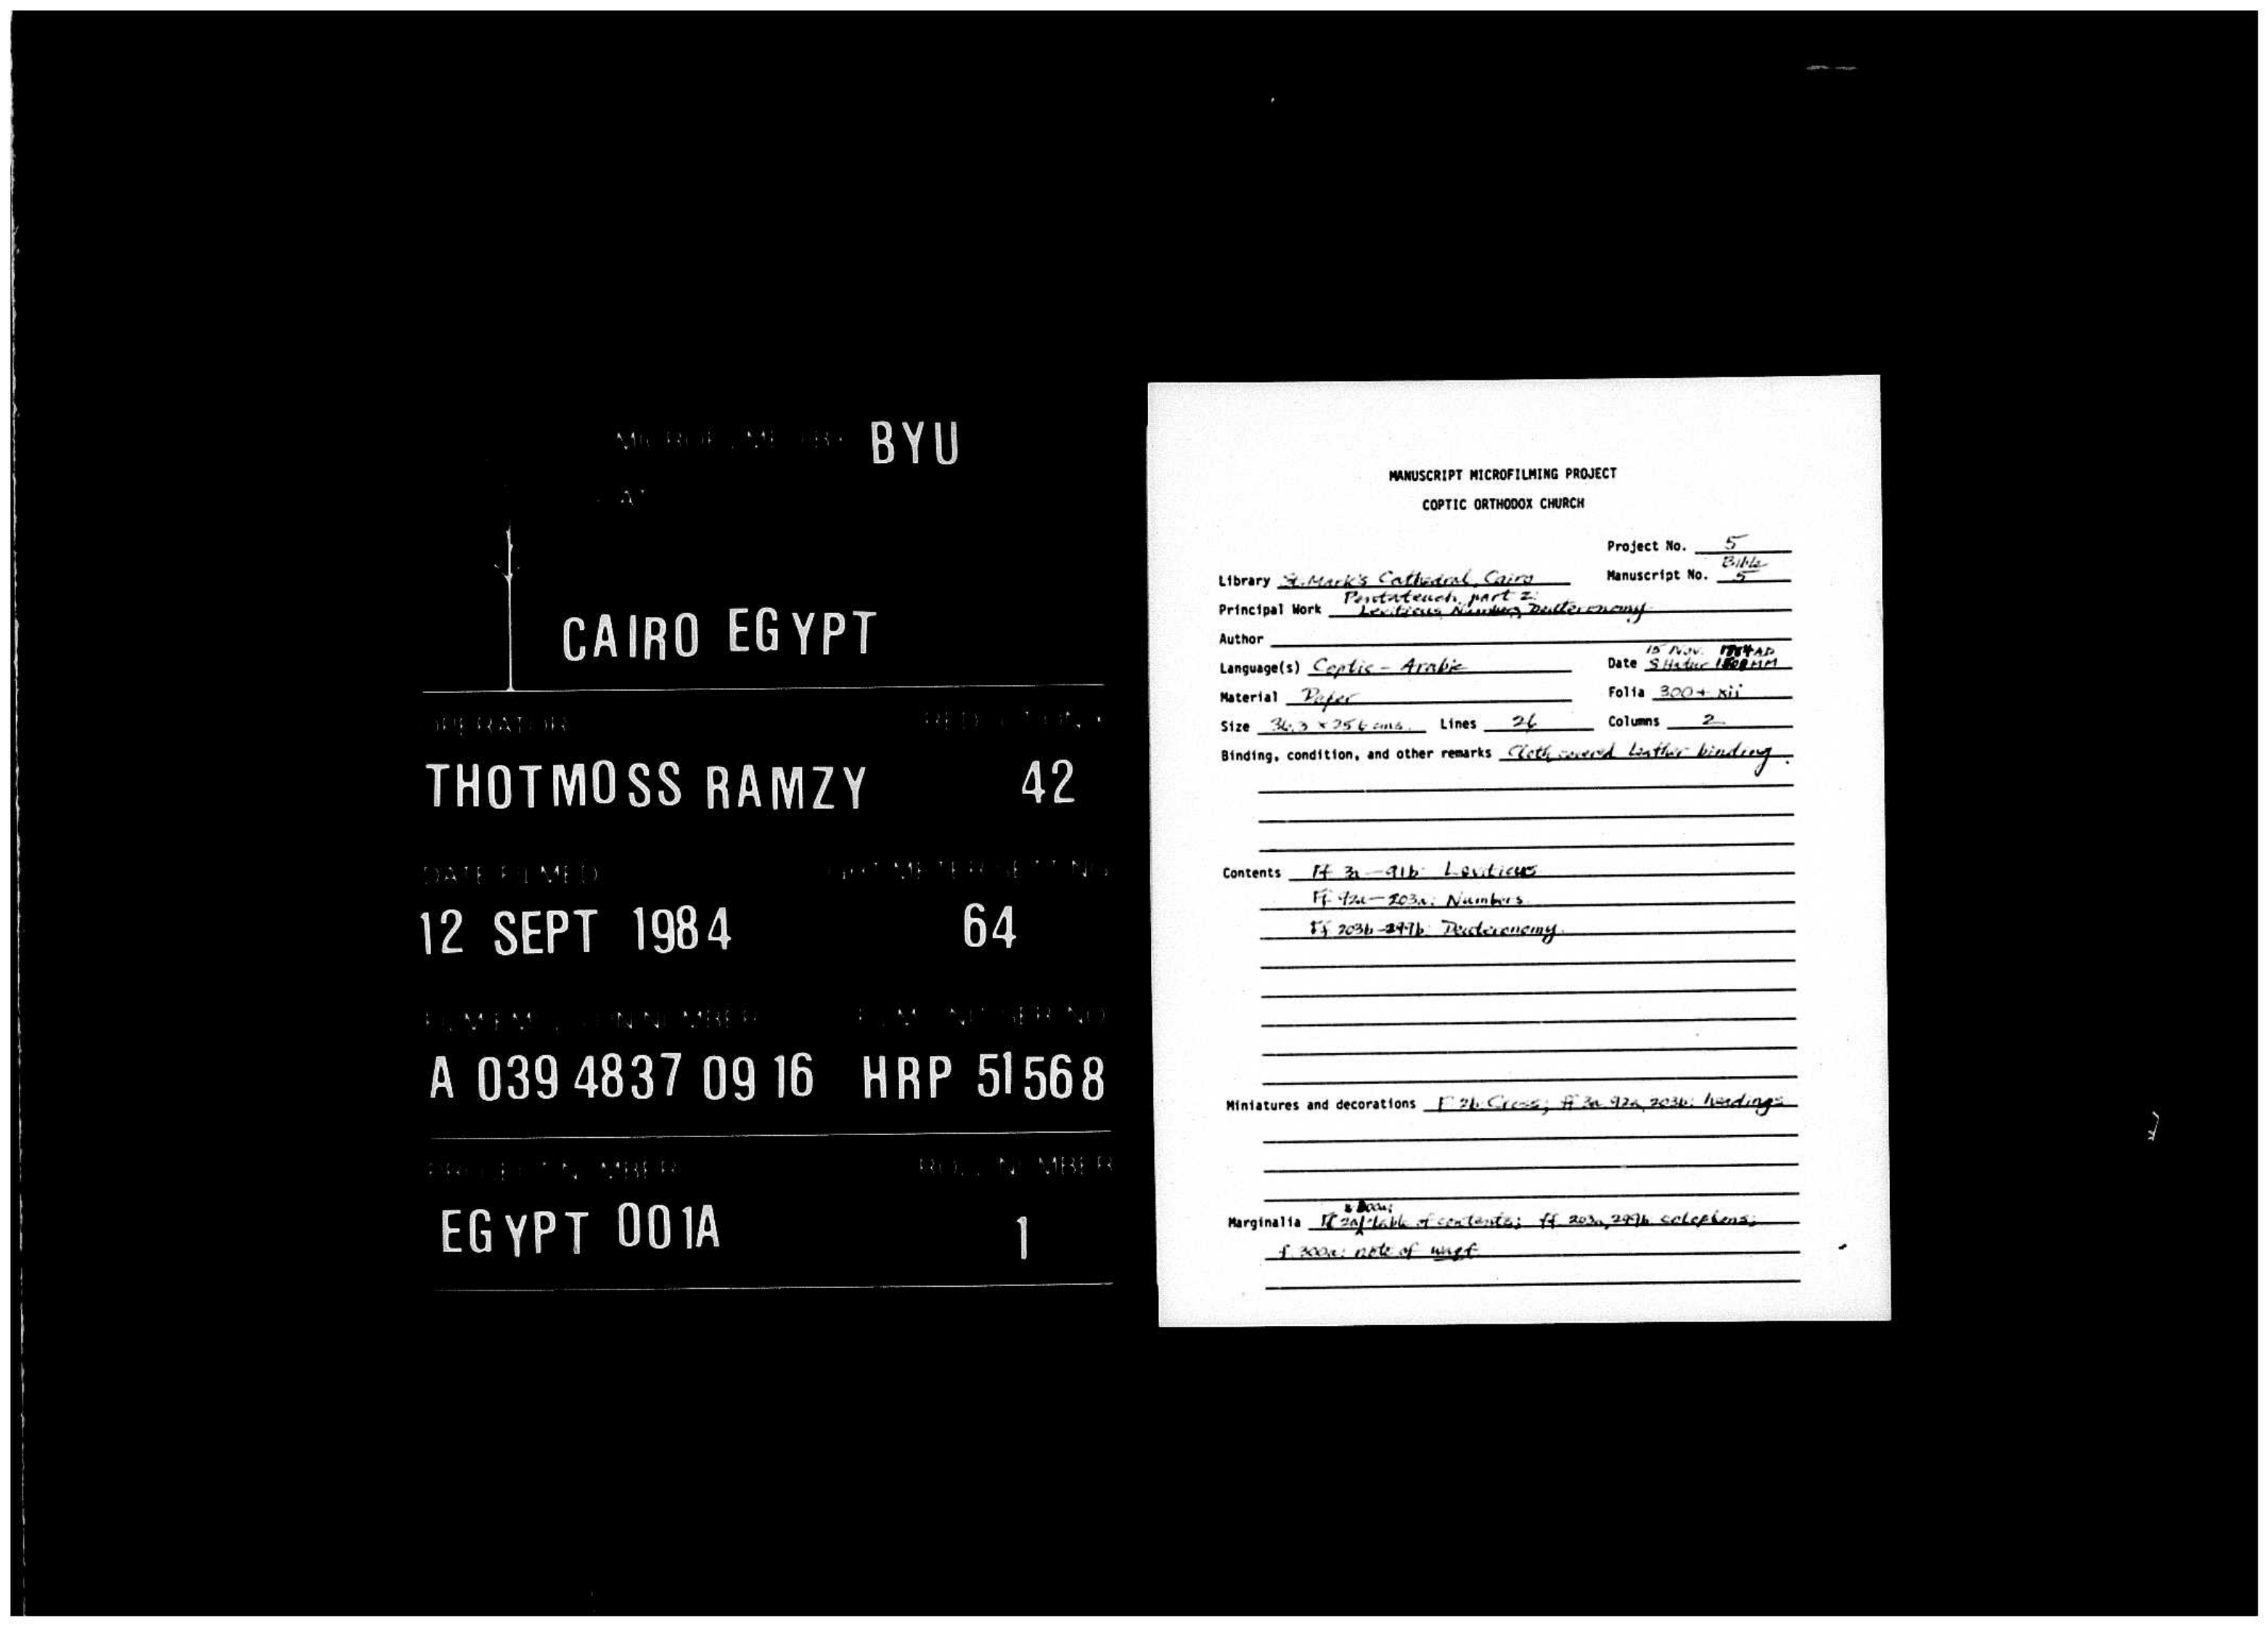 MICROFILMED BY BYU
AT
CAIRO EGYPT
OPERATOR REDUCTION X
THOTMOSS RAMZY 42
DATE FILMED LIGHT METER SETTING
12 SEPT 1984 64
FILM EMULSION NUMBER FILM UNIT SER NO
A 039 4837 09 16 HRP 51568
PROJECT NUMBER ROLL NUMBER
EGYPT 001A 1
MANUSCRIPT MICROFILMING PROJECT
COPTIC ORTHODOX CHURCH
Project No. 5
Library St. Mark's Cathedral, Cairo Manuscript No. Bible 5
Principal Work Pentateuch, part 2: Leviticus, Numbers, Deuteronomy
Author
Language(s) Coptic - Arabic Date 15 Nov. AD 5 Hatur MM
Material Paper Folia 300 + xii
Size 36.3 x 25.6 cms. Lines 26 Columns 2
Binding, condition, and other remarks Cloth covered leather binding.
Contents Ff 3a-91b: Leviticus
Ff 92a-203a: Numbers
Ff 203b-299b: Deuteronomy
Miniatures and decorations F 2b: Cross; ff 3a, 92a, 203b: headings
Marginalia Ff 2a & 300a: table of contents; ff 203a, 299b colophons;
f. 300a: note of waqf